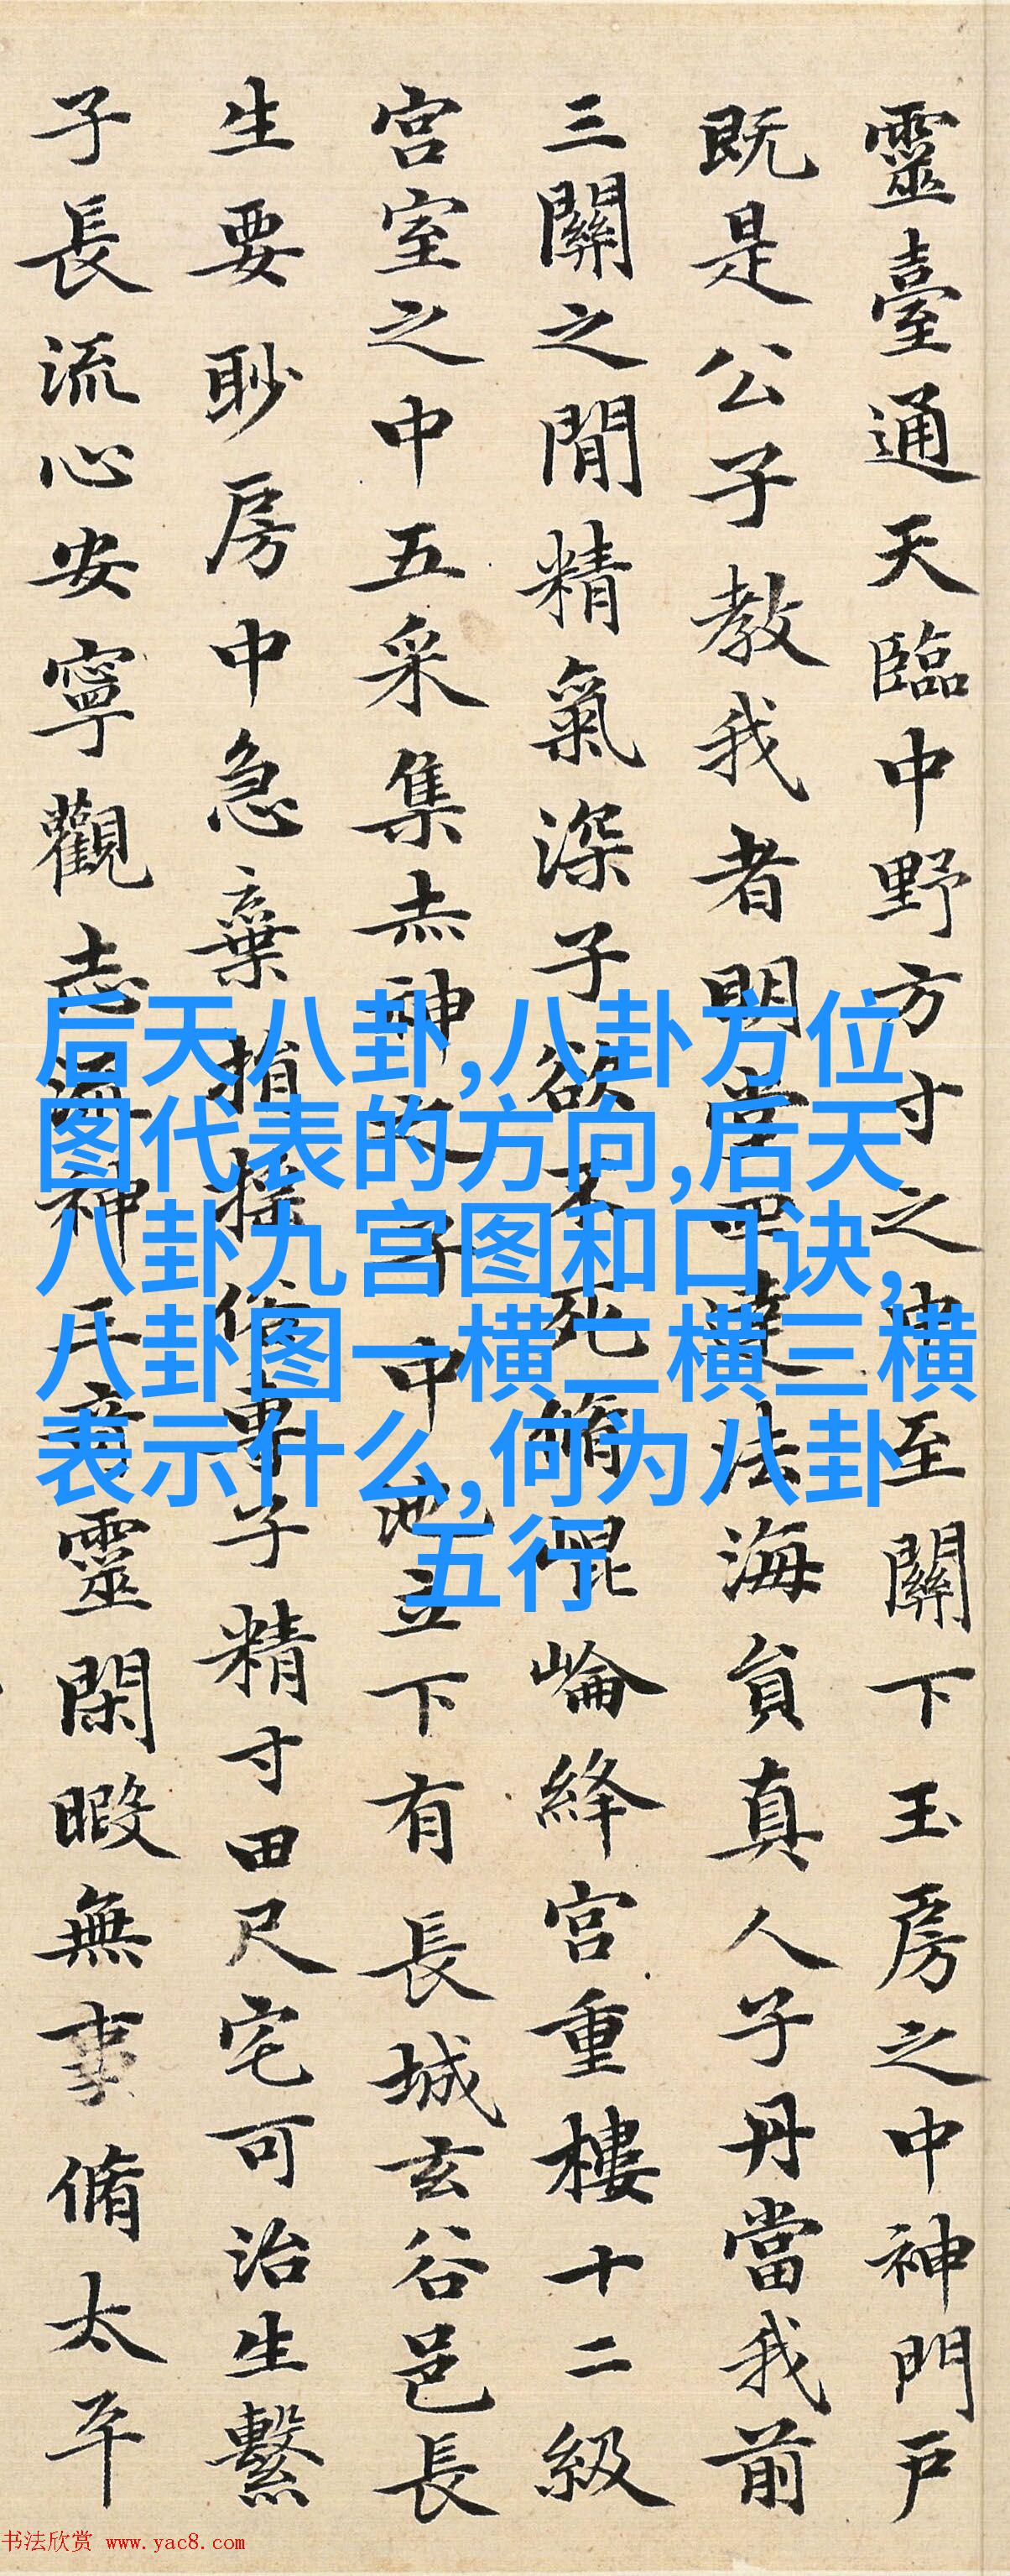 靈臺通天臨中野方寸之中至關下玉房之中神門戶
既是公子教我者明堂四達法海員真人子丹當我前
三關之間精氣深子欲不死脩崑崙絳宮重樓十二級
宮室之中五采集赤神之子中池立下有長城玄谷邑長
生要眇房中急棄捐搖俗專子精寸田尺宅可治生繫
子長流心安寧觀志遊神三奇靈閑暇無事脩太平
后天八卦,八卦方位
图代表的方向,后天
八卦九宫图和口诀,
八卦图一横二横三横
表示什么,何为八卦
五行
书法欣赏 www.yac8.com